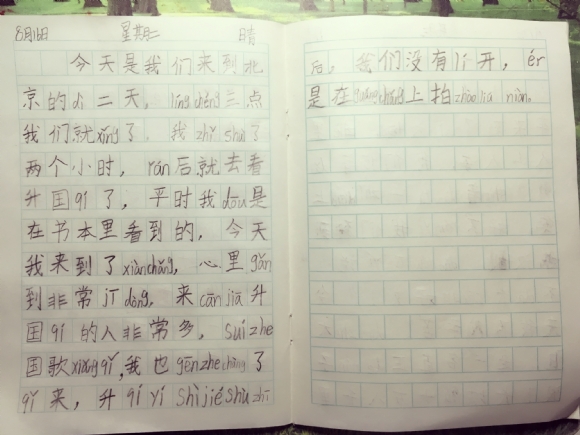 8月16日 星期二 晴
今天是我们来到北
京的dì二天，líng chén三点
我们就xǐng了。我zhǐ shuì了
两个小时，rán后就去看
升国qí了，平时我dōu是
在书本里看到的，今天
我来到了xiàn chǎng，心里gǎn
到非常jī dòng，来cān jiā升
国qí的人非常多，suí zhe
国歌xiǎng qǐ，我也gēn zhe chàng了
qǐ来，升qí yí shì jié shù zhī
后，我们没有lí开，ér
是在guǎng chǎng上拍zhào liú niàn。